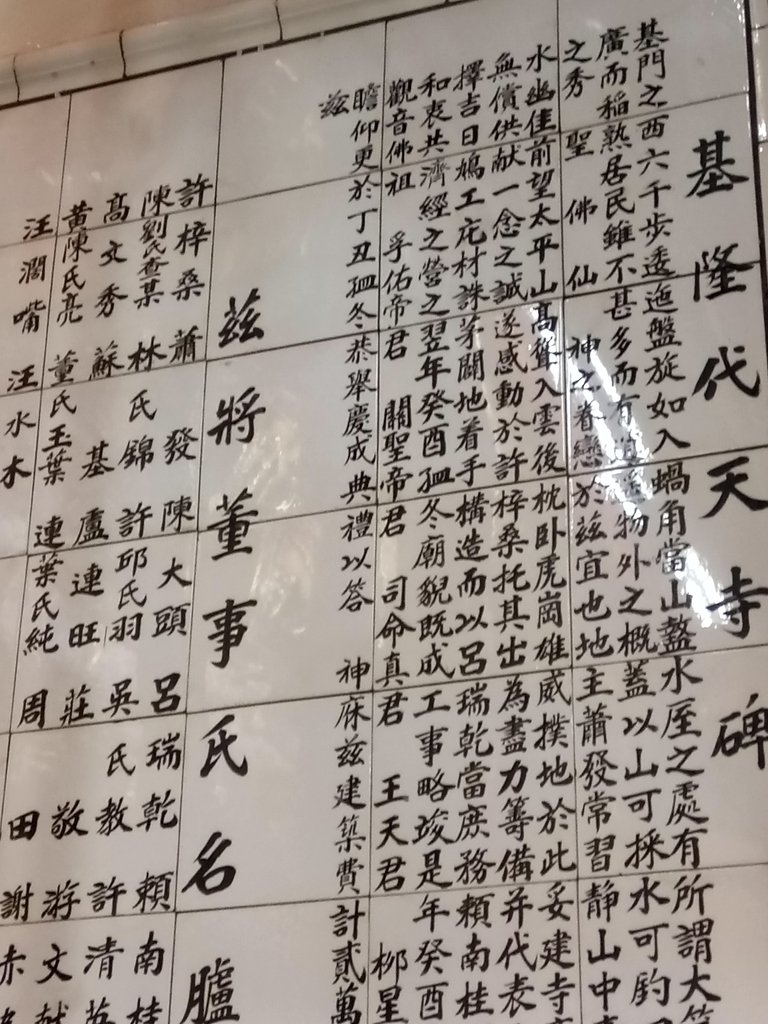 基隆代天寺碑
基門之西六千步透迤盤旋如入蝸角當山盩水厓之處有所謂大
廣而稻熟居民雖不甚多而有物外之概蓋以山可採水可釣
之秀 聖佛仙神之眷戀於茲宜也地主蕭發常習靜山中
水幽佳前望太平山高聳入雲後枕卧虎崗雄威撲地於此妥建寺
無償供献一念之誠遂感動於許梓桑托其出為盡力籌備并代表
擇吉日鳩工庀材誅茅闢地着手構造而以呂瑞乾當庶務賴南桂
和衷共濟經之營之翌年癸酉孤冬廟貌既成工事略竣是年癸酉
觀音佛祖 孚佑帝君 關聖帝君 司命真君 王天君 柳星
瞻仰更於丁丑孤冬恭舉慶成典禮以答 神庥茲建築費計貳萬
茲
茲將董事氏名臚
許梓桑 蕭發 陳大頭 呂瑞乾 賴南桂
陳劉氏查某 林氏錦 許邱氏羽 吳氏教 許清英
高文秀 蘇基 盧連旺 莊敬 游文献
黃陳氏亮 董氏玉葉 連葉氏純 周田 謝赤
汪濶嘴 汪水木